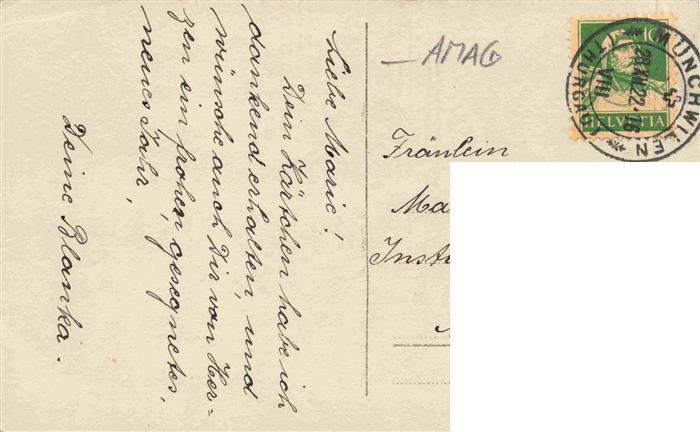 Liebe Marie!
Dein Kärtchen habe ich
dankend erhalten, und
wünsche auch Dir von Her-
zen ein frohes, gesegnetes,
neues Jahr,
Deine Blanka.
AMAG
10
HELVETIA
MÜNCHWILEN
(THURGAU)
VIII
Fräulein
Ma
Insti